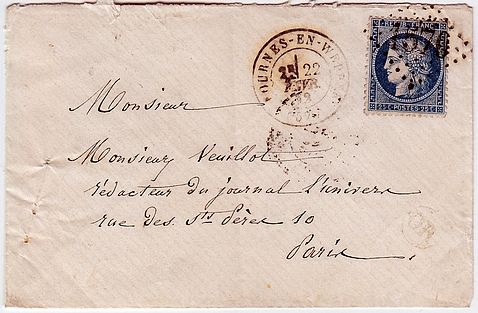 FOURNES-EN-WEPPES
22
REPUB. FRANC.
25 c POSTES 25 c
Monsieur
Monsieur Veuillot
rédacteur du journal l'univers
rue des Sts Pères 10
Paris.
OR